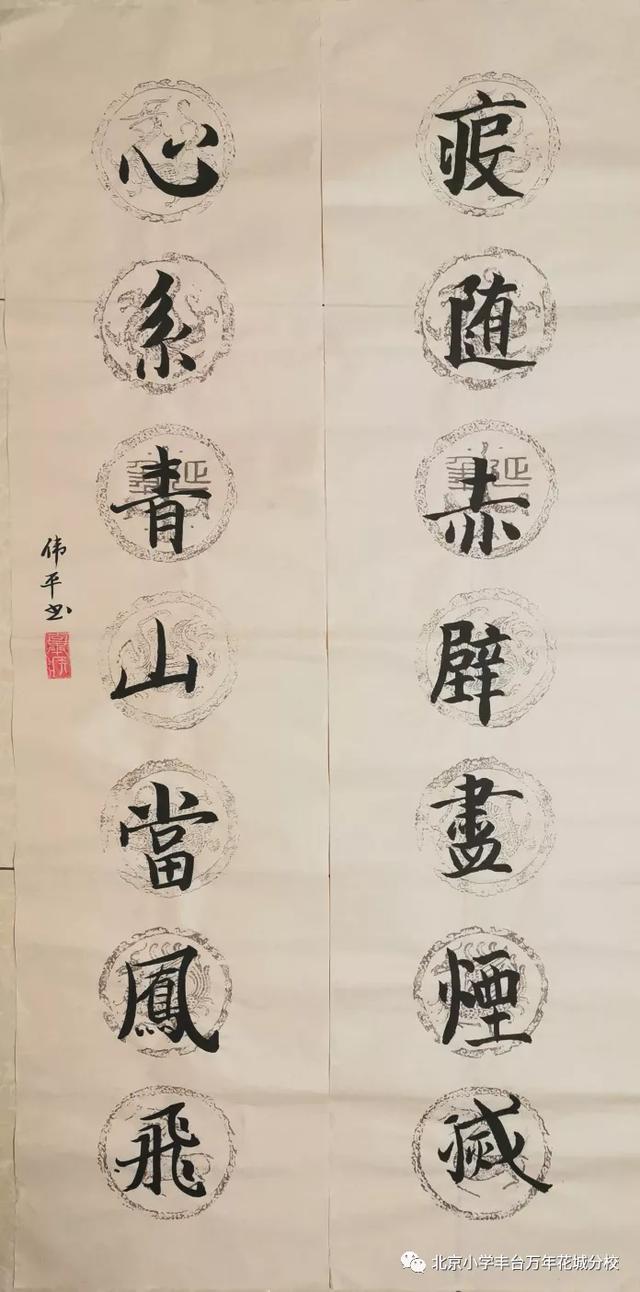 疫随赤壁盡煙滅
心系青山當鳳飛
伟平书
北京小学丰台万年花城分校